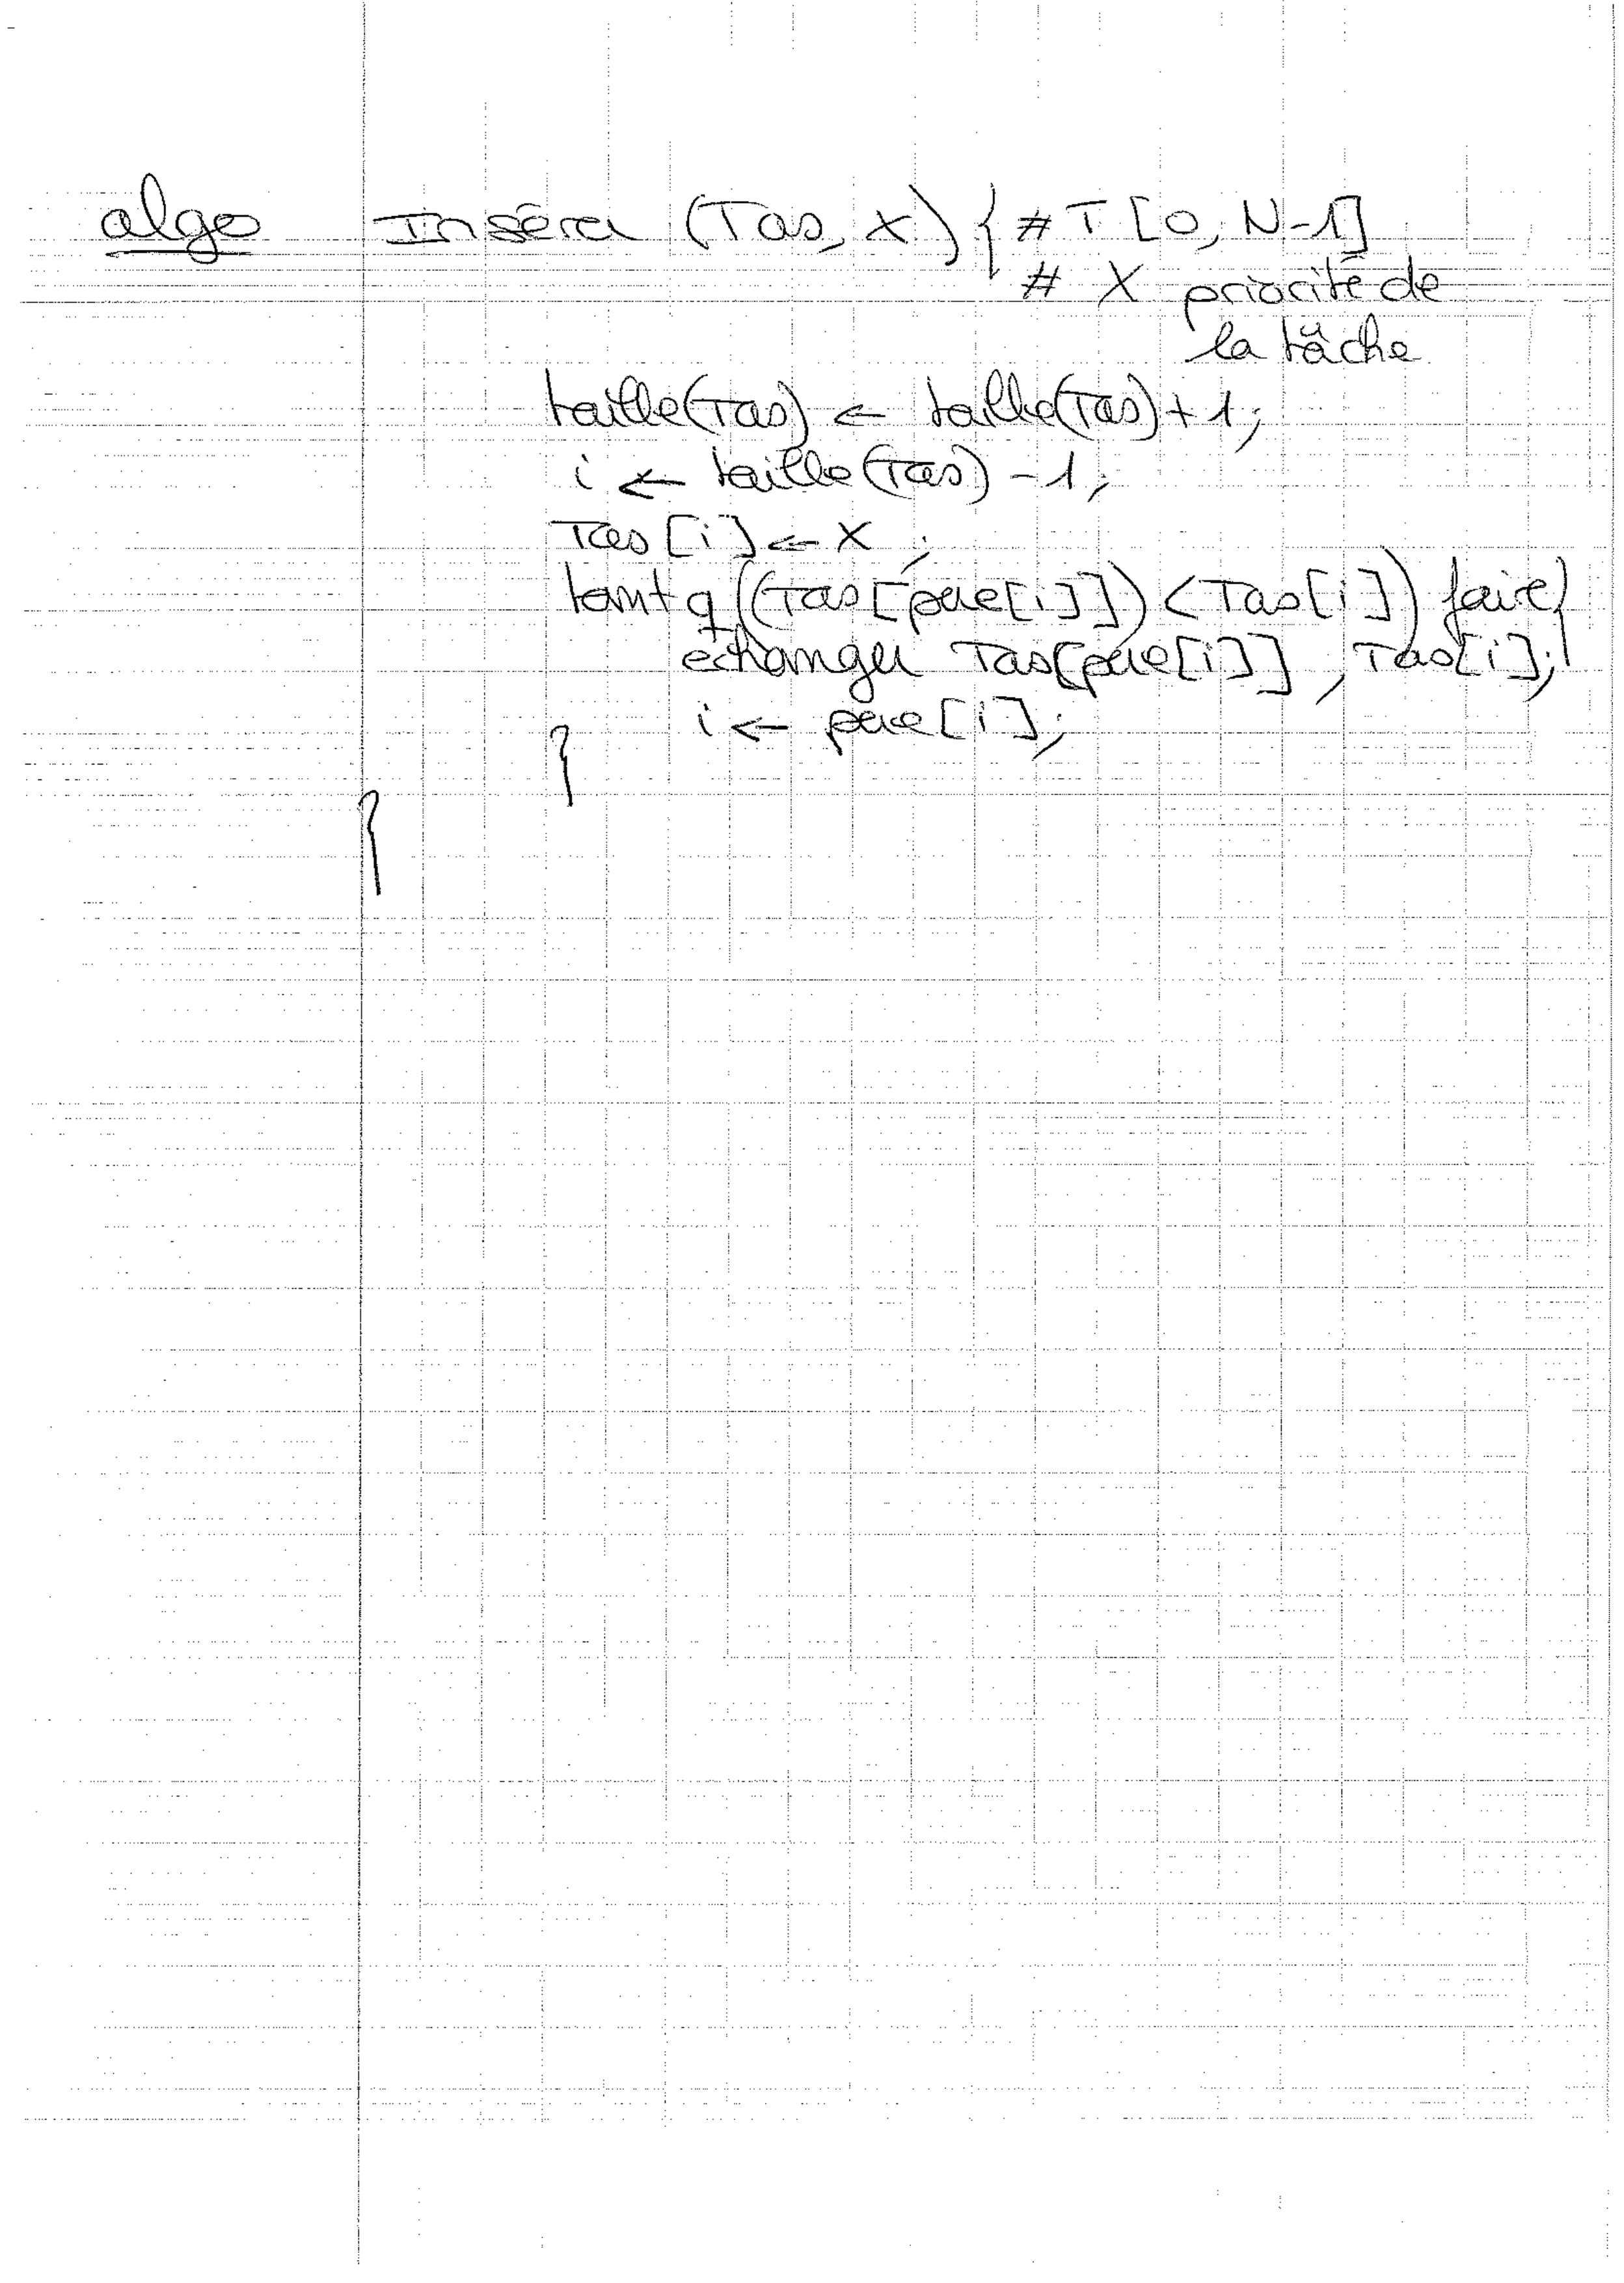 algo Insérer (Tas, x) { # T [0, N-1]
# X priorité de
la tâche
taille(Tas) ← taille(Tas) + 1;
i ← taille(Tas) - 1;
Tas [i] ← X ;
tant q ((Tas[père[i]]) < Tas[i]) faire{
échanger Tas[père[i]] , Tas[i];
i ← père[i];
}
}